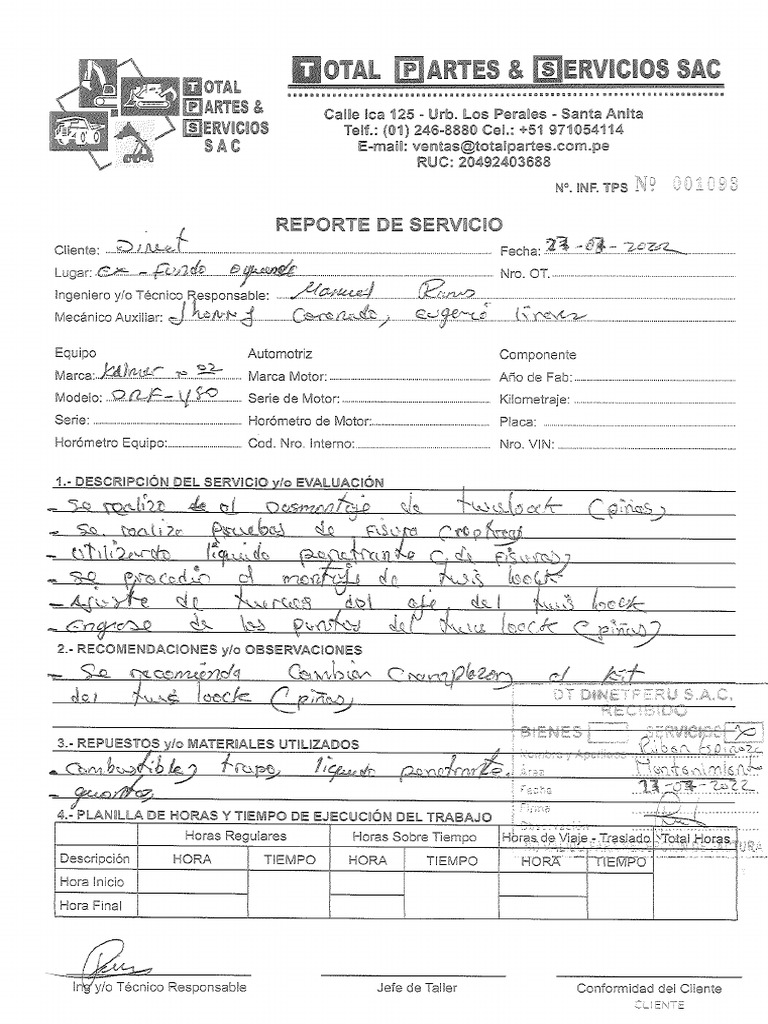 TOTAL PARTES & SERVICIOS SAC
TOTAL
PARTES &
SERVICIOS
SAC
Calle Ica 125 - Urb. Los Perales - Santa Anita
Telf.: (01) 246-8880 Cel.: +51 971054114
E-mail: ventas@totalpartes.com.pe
RUC: 20492403688
Nº. INF. TPS Nº 001093
REPORTE DE SERVICIO
Cliente: Dinet Fecha: -2022
Lugar: Ex - Fundo Oquendo Nro. OT.
Ingeniero y/o Técnico Responsable: Manuel Ramos
Mecánico Auxiliar: Jhonny Coronado, Eugenio Linares
Equipo Automotriz Componente
Marca: Kalmar nº 02 Marca Motor: Año de Fab:
Modelo: DRF-450 Serie de Motor: Kilometraje:
Serie: Horómetro de Motor: Placa:
Horómetro Equipo: Cod. Nro. Interno: Nro. VIN:
1.- DESCRIPCIÓN DEL SERVICIO y/o EVALUACIÓN
- Se realizo de el Desmontaje de twislook (piñas)
- Se realizo pruebas de Fisura
- utilizando liquido penetrante de Fisuras)
- Se procedio al montaje de twis loock
- Ajuste de tuercas del eje del twis loock
- Engrase de los puntos del twis loock (piñas)
2.- RECOMENDACIONES y/o OBSERVACIONES
- Se recomienda Cambiar el kit
del twis loock (piñas)
DT DINETPERU S.A.C.
RECIBIDO
BIENES SERVICIOS X
Nombre y Apellidos Ruben Espinoza
Área Mantenimiento
Fecha -2022
Firma
Observación
3.- REPUESTOS y/o MATERIALES UTILIZADOS
- Combustible, trapo, liquido penetrante.
- guantes
4.- PLANILLA DE HORAS Y TIEMPO DE EJECUCIÓN DEL TRABAJO
Horas Regulares Horas Sobre Tiempo Horas de Viaje - Traslado Total Horas
Descripción HORA TIEMPO HORA TIEMPO HORA TIEMPO
Hora Inicio
Hora Final
Ing y/o Técnico Responsable Jefe de Taller Conformidad del Cliente
CLIENTE